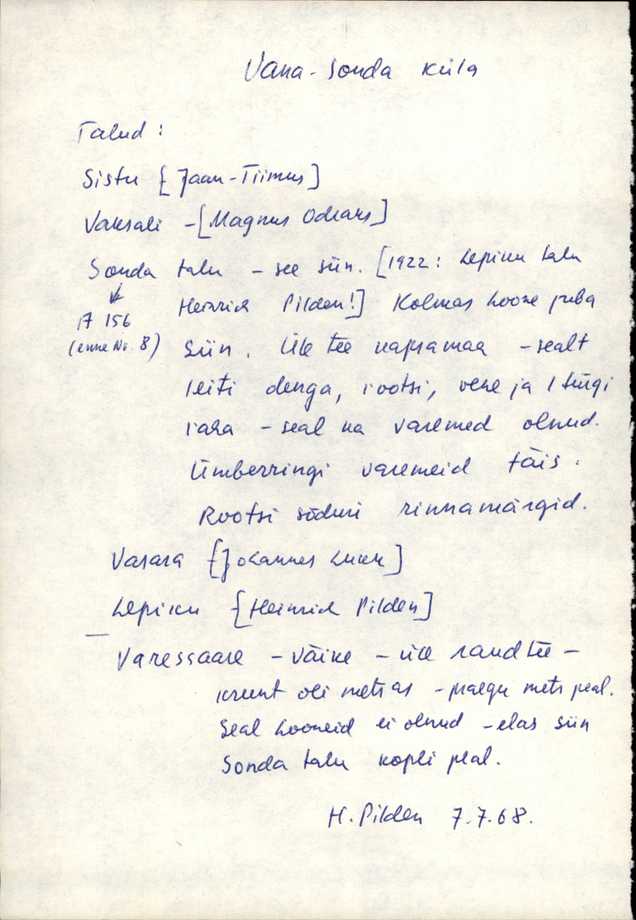 Vana-Sonda küla
Talud:
Sistu [Jaan-Tiimus]
Vaksali - [Magnus Odraks]
Sonda talu - see siin. [1922: Lepiku talu
A 156 Heinrich Pilden!] Kolmas hoone juba
(enne No. 8) siin. Üle tee napsamaa - sealt
leiti denga, rootsi, vene ja 1 türgi
raha - seal ka varemed olnud.
Ümberringi varemeid täis.
Rootsi sõduri rinnamärgid.
Vasara [Johannes]
Lepiku [Heinrich Pilden]
Varessaare - väike - üle raudtee -
krunt oli metsas - praegu mets peal.
Seal hooneid ei olnud - elas siin
Sonda talu kopli peal.
H. Pilden 7.7.68.